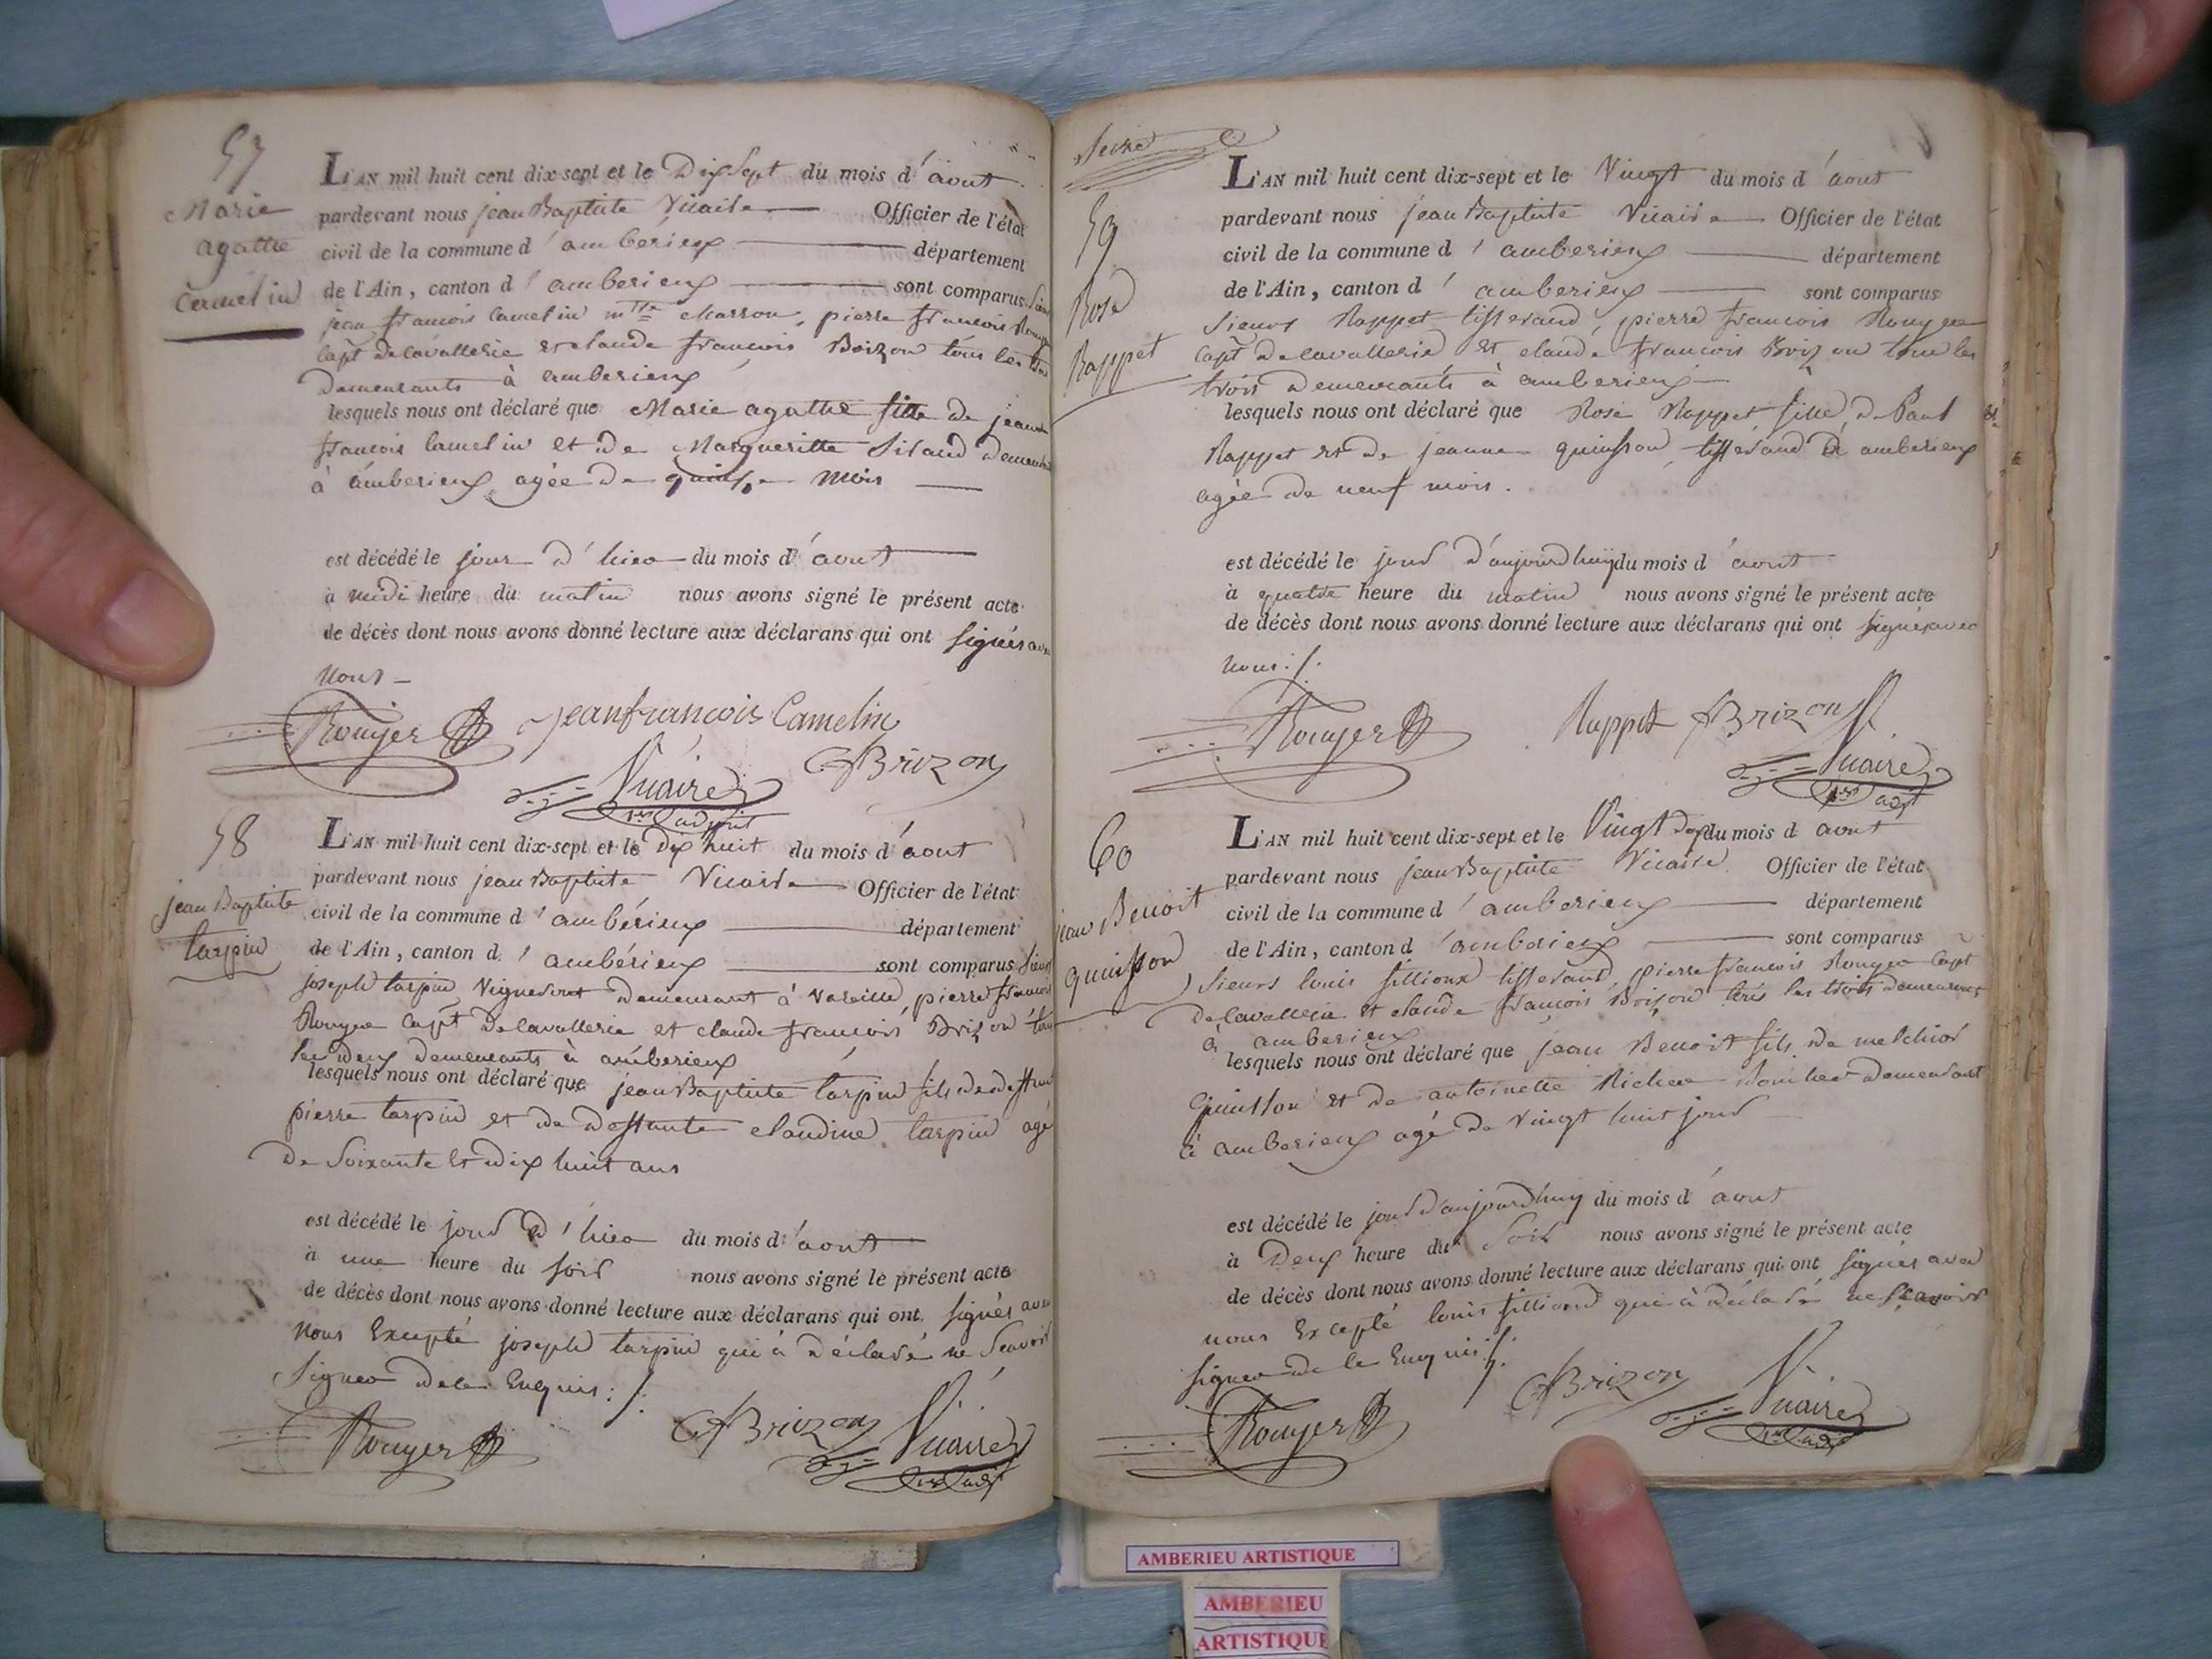 57
Marie
agathe
Camelin
L'AN mil huit cent dix-sept et le Dix Sept du mois d'aout
pardevant nous jean Baptiste Vicaire Officier de l'état
civil de la commune d'ambérieux département
de l'Ain, canton d'amberieux sont comparus Sieurs
jean francois Camelin Marron, pierre francois Rouyer
Capt de cavallerie et claude francois Brizon tous les trois
Demeurants à amberieux
lesquels nous ont déclaré que Marie agathe fille de jean
francois Camelin et de Margueritte Siraud Demeurant
à amberieux agée de quinze mois
est décédé le jour d'hier du mois d'aout
à midi heure du matin nous avons signé le présent acte
de décès dont nous avons donné lecture aux déclarans qui ont signés avec
nous
Rouyer jean francois Camelin
CfBrizon
Vicaire
1er adjoint
58
jean Baptiste
tarpin
L'AN mil huit cent dix-sept et le dix huit du mois d'aout
pardevant nous jean Baptiste Vicaire Officier de l'état
civil de la commune d'ambérieux département
de l'Ain, canton d'ambérieux sont comparus Sieurs
joseph tarpin Vigneron demeurant à Vareille, pierre francois
Rouyer Capt de cavallerie et claude francois Brizon tous
les deux demeurants à amberieux
lesquels nous ont déclaré que jean Baptiste tarpin fils de deffunt
pierre tarpin et de deffunte claudine tarpin agé
de Soixante et dix huit ans
est décédé le jour d'hier du mois d'aout
à une heure du soir nous avons signé le présent acte
de décès dont nous avons donné lecture aux déclarans qui ont signés avec
nous Excepté joseph tarpin qui à déclaré ne Scavoir
Signer de ce Enquis ./.
Rouyer CfBrizon Vicaire
1er adjt
Seize
59
Rose
Rappet
L'AN mil huit cent dix-sept et le Vingt du mois d'aout
pardevant nous jean Baptiste Vicaire Officier de l'état
civil de la commune d'amberieux département
de l'Ain, canton d'amberieux sont comparus
Sieurs Rappet tisserand, pierre francois Rouyer
Capt de cavallerie et claude francois Brizon tous les
trois demeurants à amberieux
lesquels nous ont déclaré que Rose Rappet fille de Paul
Rappet et de jeanne quinsson, tisserand à amberieux
agée de neuf mois.
est décédé le jour d'aujourdhuy du mois d'aout
à quatre heure du matin nous avons signé le présent acte
de décès dont nous avons donné lecture aux déclarans qui ont signés avec
nous ./.
Rouyer Rappet CfBrizon
Vicaire
1er adjt
60
jean Benoit
quinsson
L'AN mil huit cent dix-sept et le Vingt deux du mois d'aout
pardevant nous jean Baptiste Vicaire Officier de l'état
civil de la commune d'amberieux département
de l'Ain, canton d'amberieux sont comparus
Sieurs louis fillioux tisserand, pierre francois Rouyer Capt
de Cavallerie et claude francois Brizon tous les trois demeurants
à amberieux
lesquels nous ont déclaré que jean Benoit fils de melchior
Quinsson et de antoinette Richer demeurant
à amberieux agé de Vingt huit jours
est décédé le jour d'aujourdhuy du mois d'aout
à Deux heure du Soir nous avons signé le présent acte
de décès dont nous avons donné lecture aux déclarans qui ont signés avec
nous Excepté louis fillioux qui à déclaré ne Scavoir
signer de ce Enquis ./.
Rouyer CfBrizon Vicaire
1er adjt
AMBERIEU ARTISTIQUE
AMBERIEU
ARTISTIQUE